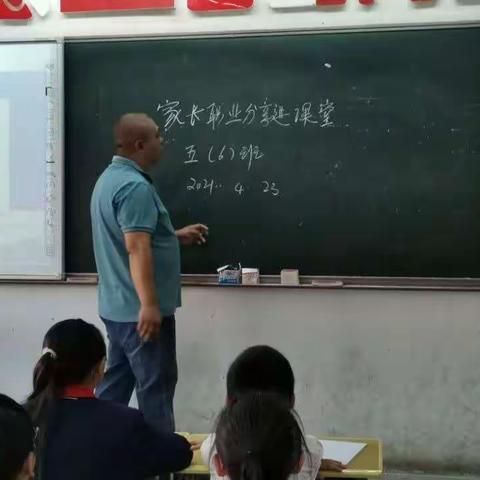 家长职业分享进课堂
五（6）班
2021. 4 23